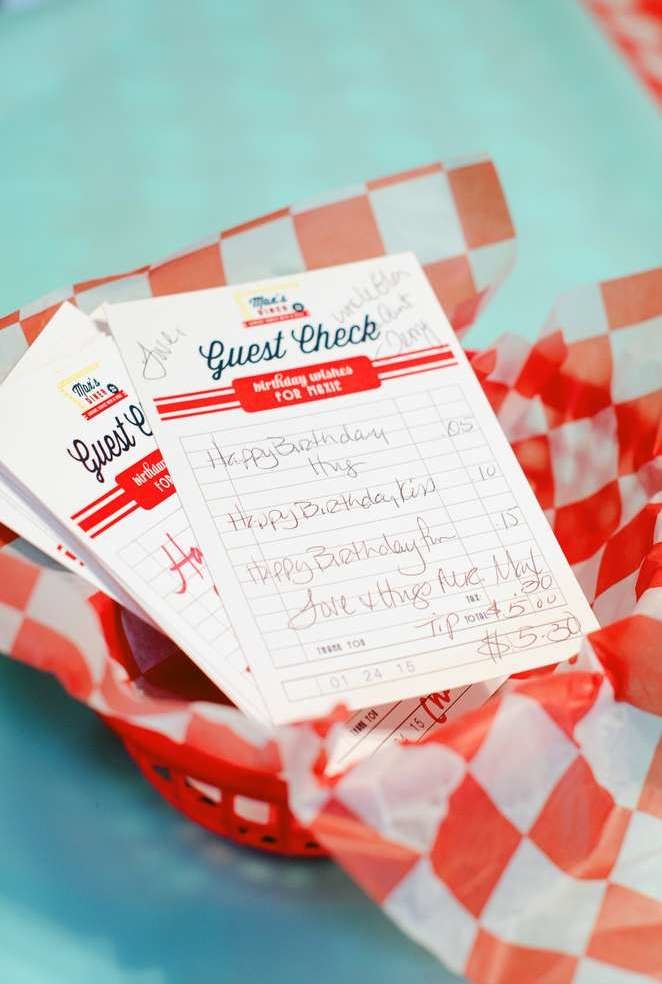 Max's
DINER
Love, Uncle Ben
Aunt
Jenny
Guest Check
birthday wishes
FOR MAXIE
Happy Birthday .05
Hug
Happy Birthday Kiss .10
Happy Birthday Fun .15
Love & Hugs
TAX .30
Tip TOTAL $5.00
THANK YOU
$5.30
01 24 15
Max's
DINER
Guest C
birthday
FOR
Ha
THANK YOU
15